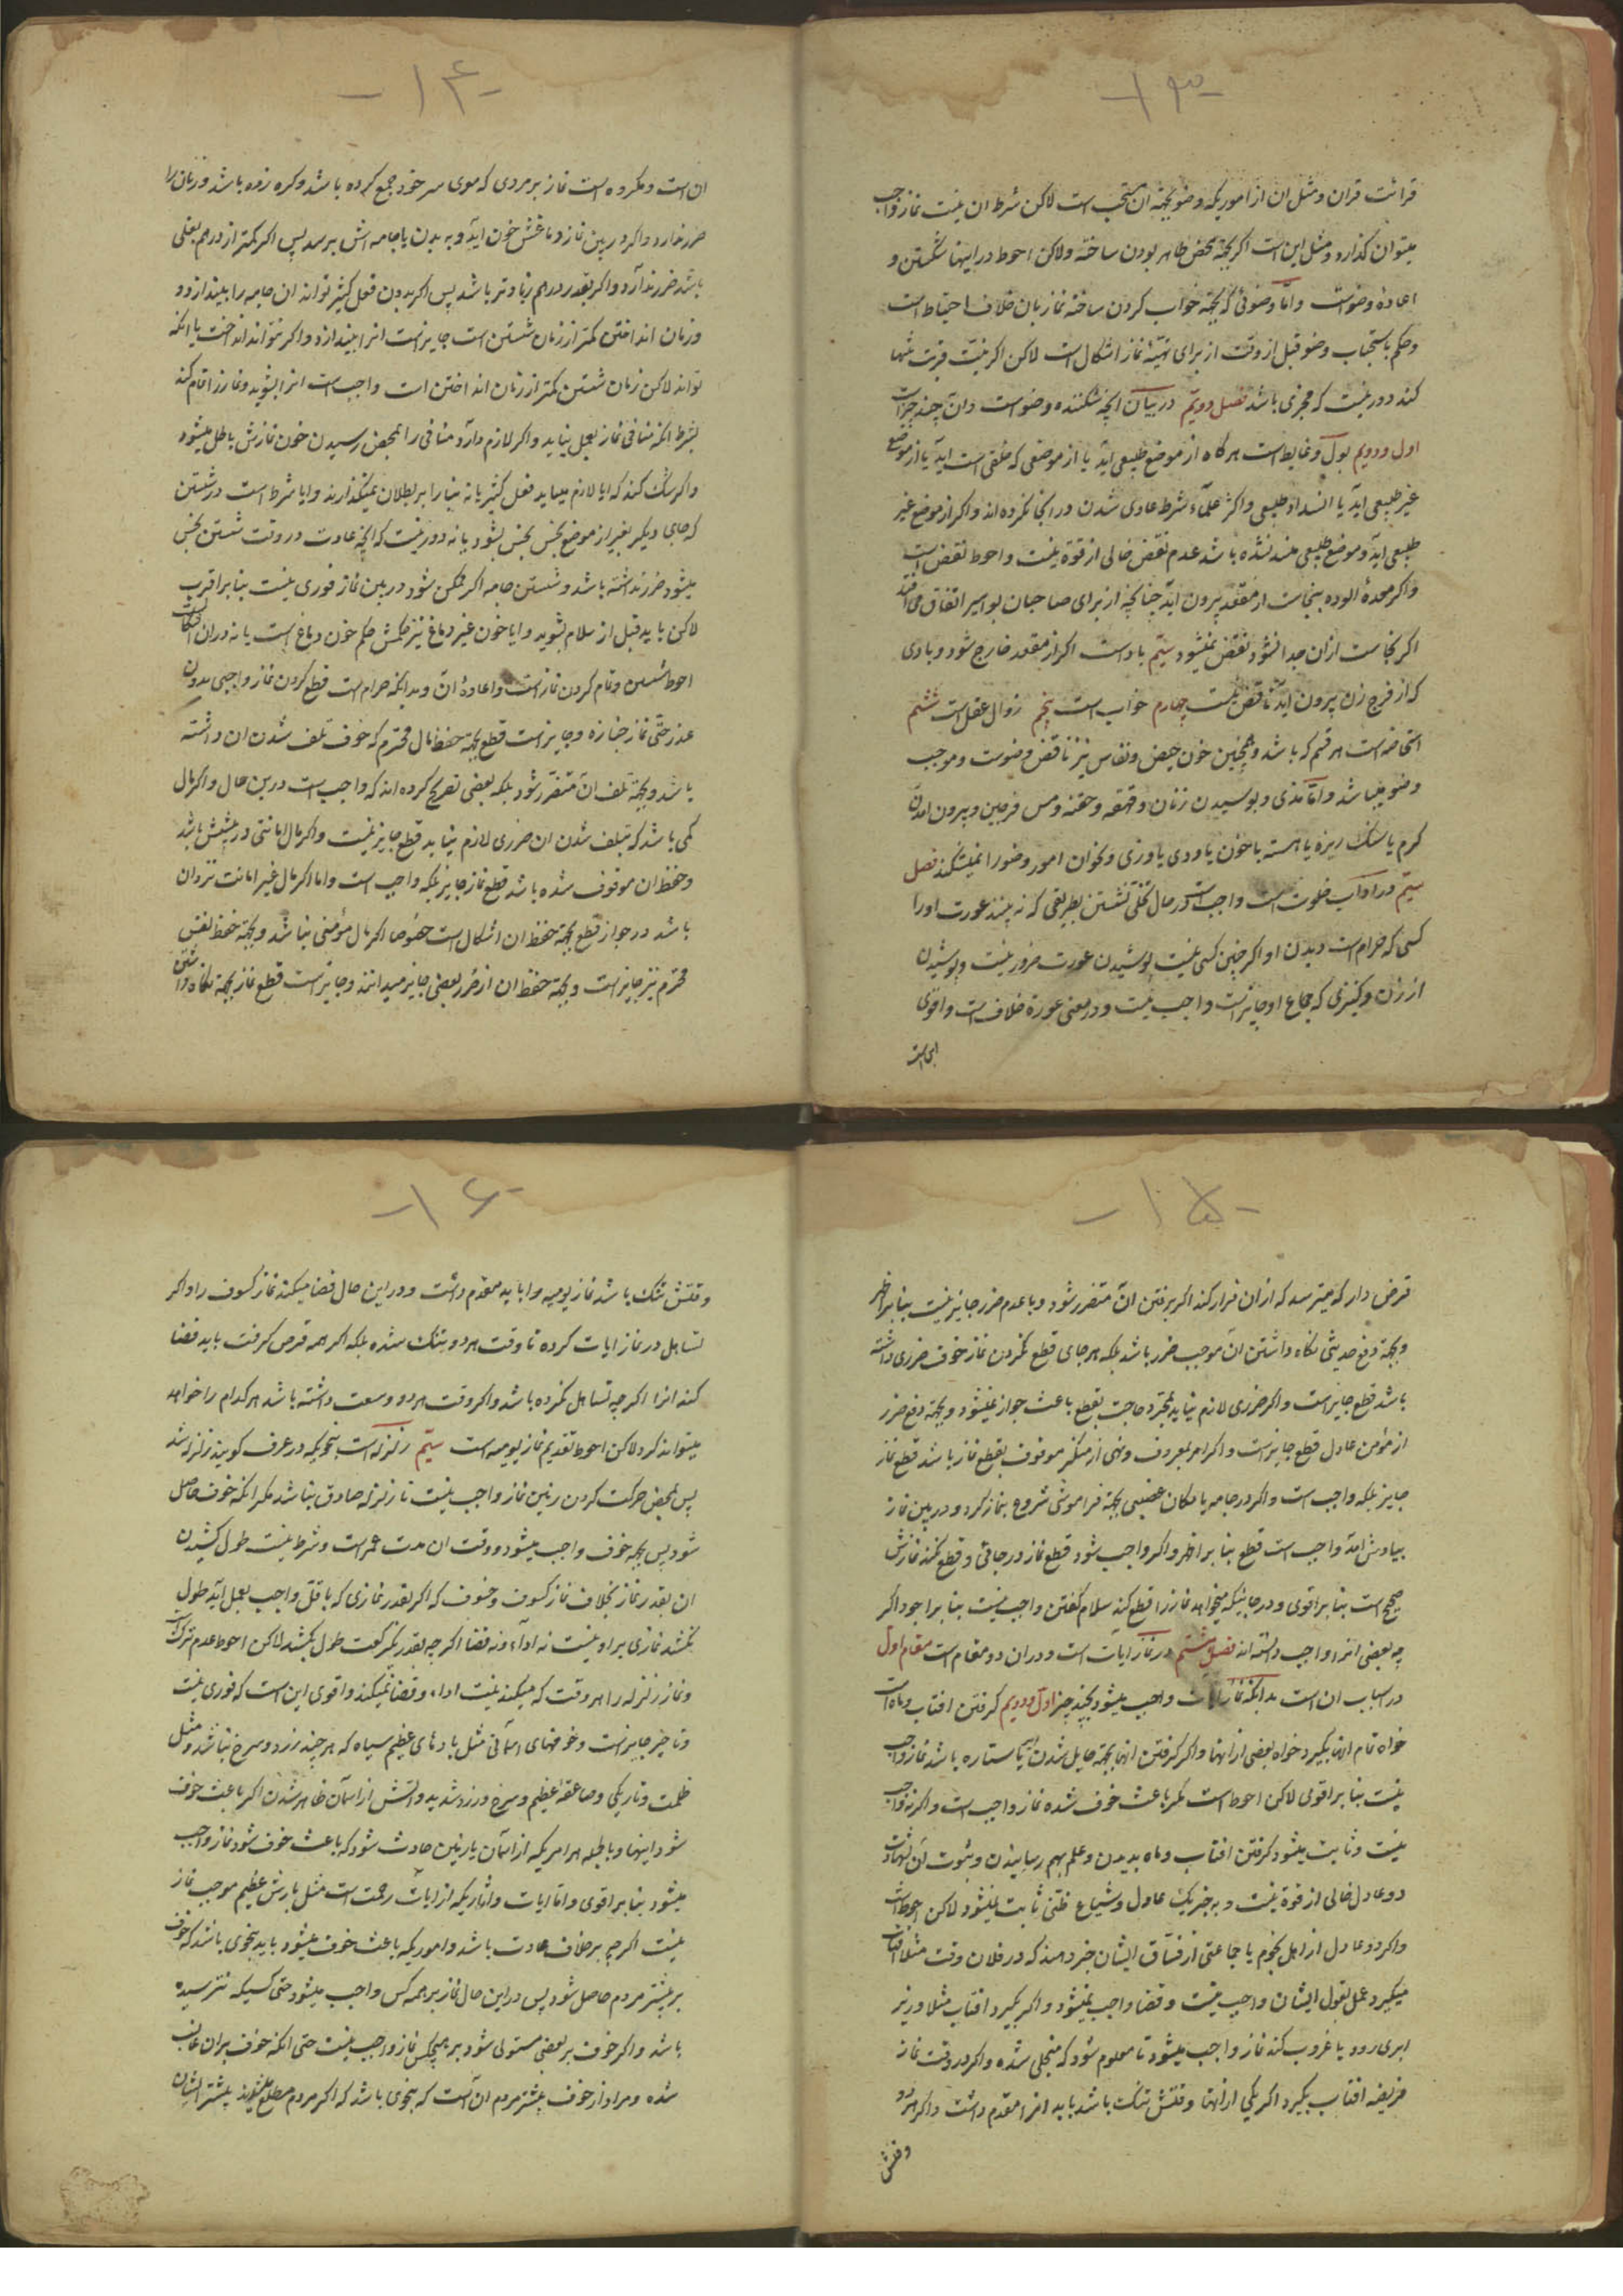 -۱۳-
قرائت قران و مثل ان از اموریکه وضو بجهة ان مستحب است لاکن شرط ان نیست نماز واجب
میتوان کذارد و مثل این است اکر بجهة محض طاهر بودن ساخته ولاکن احوط در اینها شکستن و
اعادهٔ وضوست واما وضوئی که بجهة خواب کردن ساخته نماز بان خلاف احتیاط است
وحکم باستحباب وضو قبل از وقت از برای تهیّهٔ نماز اشکال است لاکن اکر نیّت قربت تنها
کند دور نیست که مجزی باشد فصل دویّم در بیان انچه شکننده وضو است وان چند چیز است
اول و دویم بول و غایط است هرکاه از موضع طبیعی اید یا از موضعی که خلقی است اید یا از موضع
غیر طبیعی اید با انسداد طبیعی واکثر علماء شرط عادی شدن در اینجا نکرده اند واکر از موضع غیر
طبیعی اید وموضع طبیعی منسد نشده باشد عدم نقض خالی از قوة نیست واحوط نقض است
واکر معدهٔ الوده بنجاست از مقعد بیرون اید چنانچه از برای صاحبان بواسیر اتفاق می افتد
اکر نجاست ازان جدا نشود نقض نمیشود سیّم باد است اکر از مقعد خارج شود و بادی
که از فرج زن بیرون اید ناقض نیست چهارم خواب است پنجم زوال عقل است ششم
استحاضه است هر قسم که باشد وهمچنین خون حیض و نفاس نیز ناقض وضوست و موجب
وضو میباشد واما مذی و بوسیدن زنان و قهقهه و حقنه و مس فرجین و بیرون امدن
کرم یا سنک ریزه یا هسته یا خون یا ودی یا وزی و نحو ان امور وضو را نمیشکند فصل
سیّم در اداب خلوت است واجب است در حال تخلّی نشستن بطریقی که نه بیند عورت او را
کسی که حرام است دیدن او اکر چنین کسی نیست پوشیدن عورت ضرور نیست و پوشیدن
از زن و کنیزی که جماع او جایز است واجب نیست و در معنی عورة خلاف است واقوی
-۱۴-
ان است و مکروه است نماز بر مردی که موی سر خود جمع کرده باشد و کره زده باشد و زنان را
ضرر ندارد واکر در بین نماز دماغش خون اید و به بدن یا جامه اش برسد پس اکر کمتر از درهم بغلی
باشد ضرر ندارد واکر بقدر درهم زیادتر باشد پس اکر بدون فعل کثیر تواند ان جامه را بیندازد و
و زمان انداختن کمتر از زمان شستن است جایز است انرا بیندازد واکر نتواند انداخت یا انکه
تواند لاکن زمان شستن کمتر از زمان انداختن است واجب است انرا بشوید و نماز را تمام کند
بشرط انکه منافی نماز بعمل نیاید واکر لازم دارد منافی را بمحض رسیدن خون نمازش باطل میشود
واکر شک کند که ایا لازم میاید فعل کثیر یا نه بنا را بر بطلان نمیکذارند وایا شرط است در شستن
که جای دیکر بغیر از موضع نجس نجس نشود یا نه دور نیست که انچه عادت در وقت شستن نجس
میشود ضرر نداشته باشد و شستن جامه اکر ممکن شود در بین نماز فوری نیست بنا بر اقرب
لاکن باید قبل از سلام بشوید وایا خون غیر دماغ نیز حکمش حکم خون دماغ است یا نه در ان اشکالست
احوط شستن و تمام کردن نماز است واعادهٔ ان وبدانکه حرام است قطع کردن نماز واجبی بدون
عذر حتّی نماز جنازه و جایز است قطع بجهة حفظ مال محترم که خوف تلف شدن ان داشته
باشد و بجهة تلف ان متضرر شود بلکه بعضی تصریح کرده اند که واجب است در این حال واکر مال
کمی باشد که بتلف شدن ان ضرری لازم نیاید قطع جایز نیست واکر مال امانتی در پیشش باشد
و حفظ ان موقوف شده باشد قطع نماز جایز بلکه واجب است واما اکر مال غیر امانت نزد ان
باشد در جواز قطع بجهة حفظ ان اشکال است خصوصا اکر مال مؤمنی نباشد و بجهة حفظ نفس
محترم نیز جایز است و بجهة حفظ ان از ضرر بعضی جایز میدانند و جایز است قطع نماز بجهة نکاه داشتن
-۱۵-
قرض دار که میترسد که از ان فرار کند اکر برفتن ان متضرر شود و با عدم ضرر جایز نیست بنا بر اظهر
و بجهة دفع حدیثی نکاه داشتن ان موجب ضرر باشد بلکه هر جای قطع نکردن نماز خوف ضرری داشته
باشد قطع جایز است واکر ضرری لازم نیاید بمجرد حاجت بقطع باعث جواز نمیشود و بجهة دفع ضرر
از مؤمن عادل قطع جایز است واکر امر بمعروف و نهی از منکر موقوف بقطع نماز باشد قطع نماز
جایز بلکه واجب است واکر در جامه یا مکان غصبی بجهة فراموشی شروع بنماز کرد و در بین نماز
بیادش امد واجب است قطع بنا بر اظهر واکر واجب شود قطع نماز در جائی و قطع نکند نمازش
صحیح است بنا بر اقوی و در جائیکه میخواهد نماز را قطع کند سلام کفتن واجب نیست بنا بر اجود اکر
چه بعضی انرا واجب دانسته اند فصل هشتم در نماز ایات است و در ان دو مقام است مقام اول
در اسباب ان است بدانکه نماز ایات واجب میشود بچند چیز اول و دویم کرفتن افتاب و ماه است
خواه تمام انها بکیرد خواه بعضی از انها واکر کرفتن انها بجهة حایل شدن ستاره باشد نماز واجب
نیست بنا بر اقوی لاکن احوط است مکر باعث خوف شده نماز واجب است واکر نه واجب
نیست و ثابت میشود کرفتن افتاب و ماه بدیدن و علم بهم رسانیدن و ثبوت ان بشهادت
دو عادل خالی از قوة نیست و به خبر یک عادل و شیاع ظنّی ثابت نمیشود لاکن احوط است
واکر دو عادل از اهل نجوم یا جماعتی از فسّاق ایشان خبر دهند که در فلان وقت مثلا افتاب
میکیرد عمل بقول ایشان واجب نیست و قضا واجب نمیشود واکر بکیرد افتاب مثلا و زیر
ابری رود یا غروب کند نماز واجب میشود تا معلوم شود که منجلی شده واکر در وقت نماز
فریضه افتاب بکیرد اکر یکی از انها وقتش تنک باشد باید انرا مقدم داشت واکر هر دو
وقتش
-۱۶-
وقتش تنک باشد نماز یومیه را باید مقدم داشت و در این حال قضا میکند نماز کسوف را واکر
تساهل در نماز ایات کرده تا وقت هر دو تنک شده بلکه اکر همه قرص کرفت باید قضا
کند انرا اکر چه تساهل نکرده باشد واکر وقت هر دو وسعت داشته باشد هر کدام را خواهد
میتواند کرد لاکن احوط تقدیم نماز یومیه است سیّم زلزله است بنحویکه در عرف کویند زلزله شد
پس بمحض حرکت کردن زمین نماز واجب نیست تا زلزله صادق نباشد مکر انکه خوف حاصل
شود پس بجهة خوف واجب میشود و وقت ان مدت عمر است و شرط نیست طول کشیدن
ان بقدر نماز بخلاف نماز کسوف و خسوف که اکر بقدر نمازی که باقل واجب بعمل اید طول
نکشد نمازی بر او نیست نه اداء و نه قضا اکر چه بقدر یکرکعت طول بکشد لاکن احوط عدم ترک است
و نماز زلزله را هر وقت که میکند نیت اداء و قضا نمیکند واقوی این است که فوری نیست
و تاخیر جایز است و خوفهای اسمانی مثل بادهای عظیم سیاه که هر چند زرد و سرخ نباشد و مثل
ظلمت و تاریکی و صاعقه عظیم و سرخ و زرد شدید واتش از اسمان ظاهر شدن اکر باعث خوف
شود اینها و بالجمله هر امریکه از اسمان یا زمین حادث شود که باعث خوف شود نماز واجب
میشود بنا بر اقوی واما ایات واثاریکه از ایات رحمت است مثل بارش عظیم موجب نماز
نیست اکر چه بر خلاف عادت باشد و اموریکه باعث خوف میشود باید بنحوی باشد که خوف
بر بیشتر مردم حاصل شود پس در این حال نماز بر همه کس واجب میشود حتی کسیکه نترسیده
باشد واکر خوف بر بعضی مستولی شود بر هیچکس نماز واجب نیست حتی انکه خوف بر ان غالب
شده و مراد از خوف بیشتر مردم ان است که بنحوی باشد که اکر مردم مطلع میشدند بیشتر ایشان